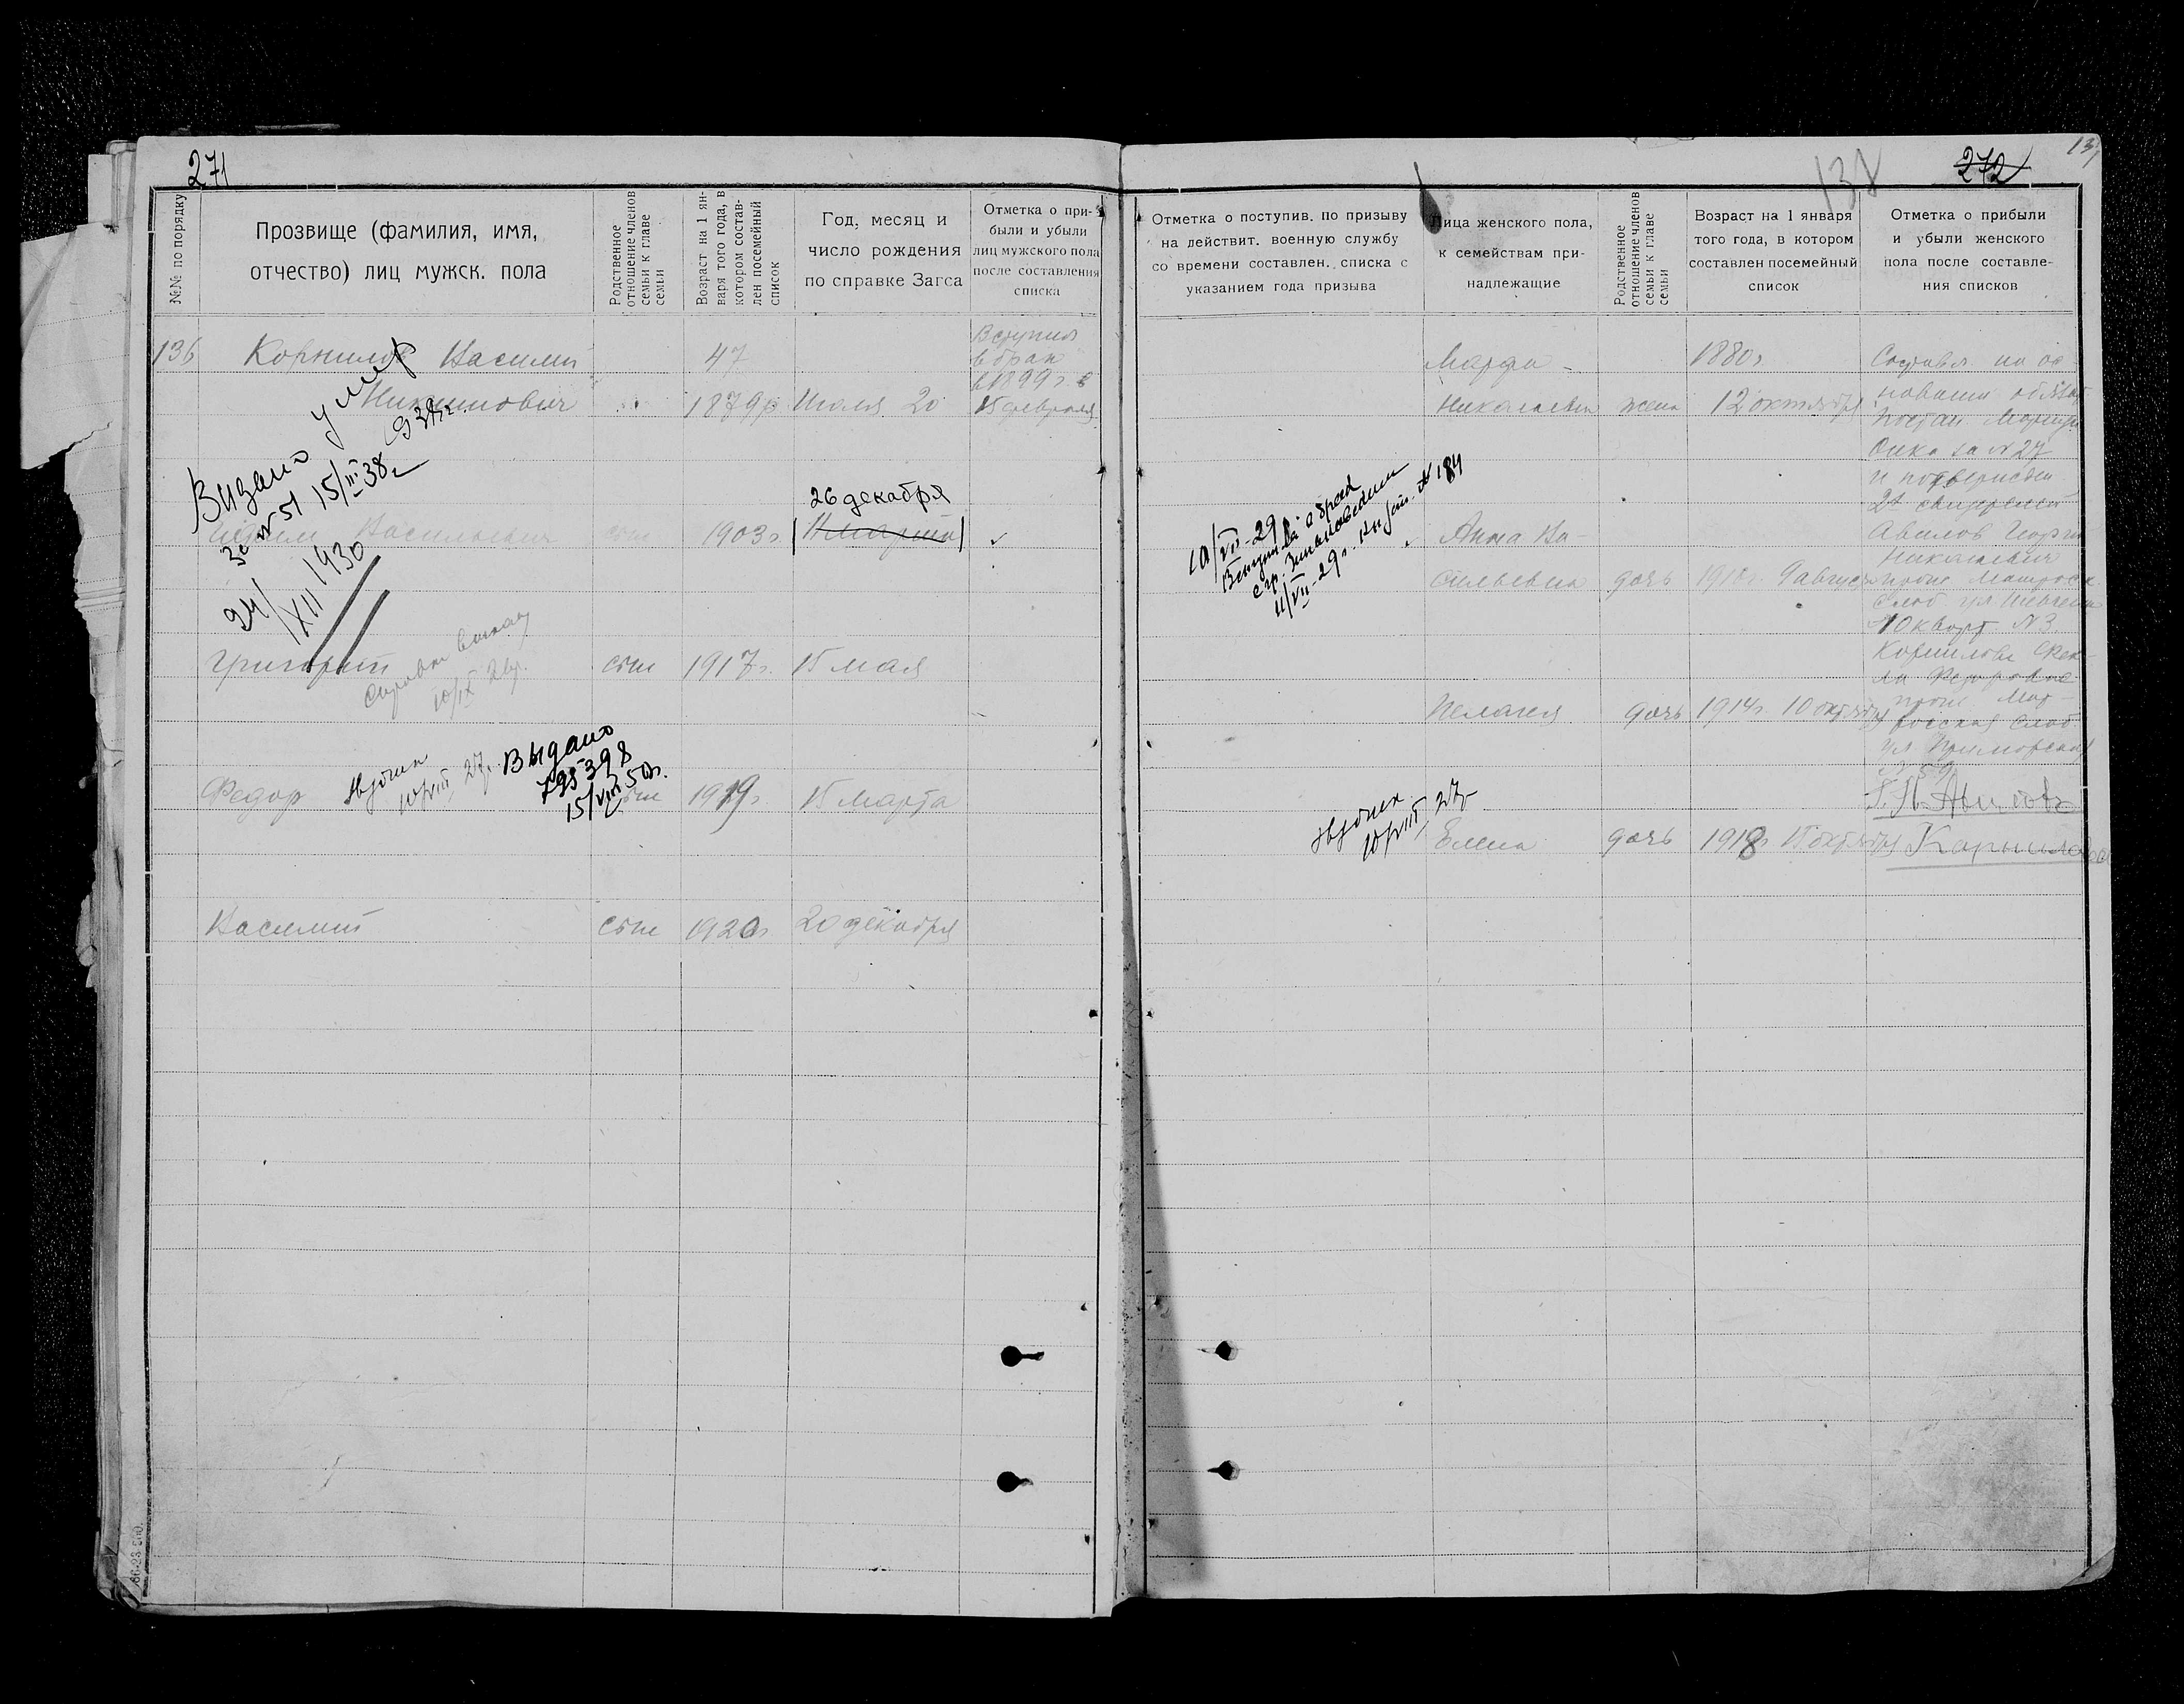 271
№№ по порядку
Прозвище (фамилия, имя,
отчество) лиц мужск. пола
Родственное
отношение членов
семьи к главе
семьи
Возраст на 1 ян-
варя того года, в
котором состав-
лен посемейный
список
Год, месяц и
число рождения
по справке Загса
Отметка о при-
были и убыли
лиц мужского пола
после составления
списка
136 Корнилов Василий 47
Вступил
в брак
в 1899 г. в
15 февраля
1879 г. Июля 20
умер
Выдано
за № 51 15/III 38 г.
26 декабря
Василиевич сын 1903 г.
24/XII 1930
Григорий сын 1917 г. 15 мая
Справка
10/IX
Федор 1919 г. 15 марта
10/VIII 27 г.
Выдано
795398
15/VIII 50 г.
Василий сын 1920 г. 20 декабря
272
138
Отметка о поступив. по призыву
на действит. военную службу
со времени составлен. списка с
указанием года призыва
Лица женского пола,
к семействам при-
надлежащие
Родственное
отношение членов
семьи к главе
семьи
Возраст на 1 января
того года, в котором
составлен посемейный
список
Отметка о прибыли
и убыли женского
пола после составле-
ния списков
Марфа 1880 г.
Николаевна жена 12 октября
Составл. на ос-
новании
постан.
за № 27
и
2х свидетелей
Авилов
Николаевич
прож. Матросск.
слоб. ул. Шевченко
10 кварт. № 3
Корнилова
Федоровна
прож. Мат-
росская слоб.
ул. Приморская
№ 59
10/VII-29 г.
Вступила в брак
с гр.
11/VII-29 г. № 184
Анна Ва-
сильевна дочь 9 августа
Пелагея дочь 1914 г. 10 октября
10/VIII 27 г.
Елена дочь 1918 г. 15 октября
Г. Н. Авилов
Корнилова
66-23-500.